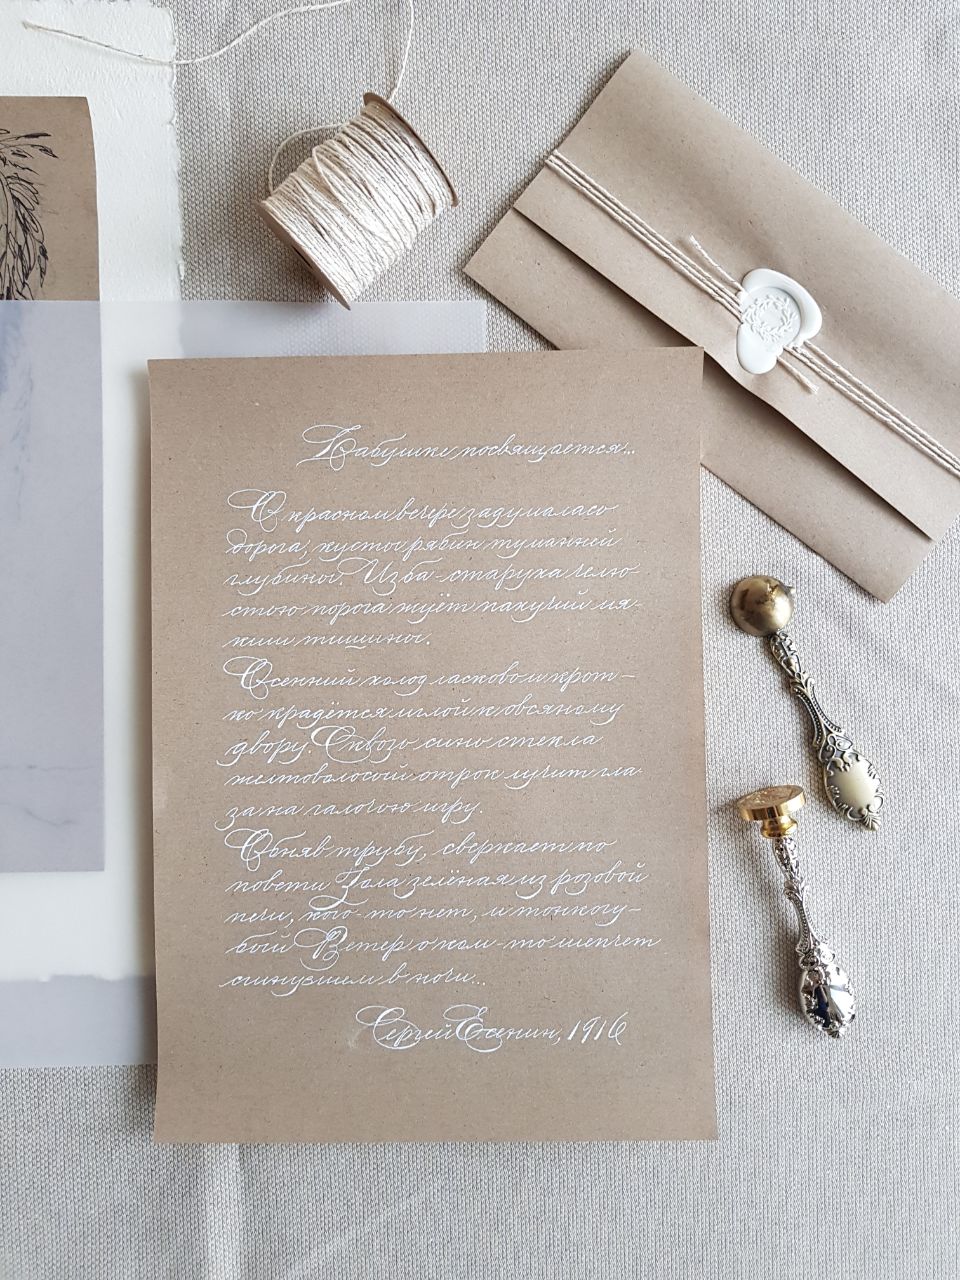 Бабушке посвящается...
О красном вечере задумалась
дорога, кусты рябин туманней
глубины. Изба-старуха челю-
стью порога жуёт пахучий мя-
киш тишины.
Осенний холод ласково и крот-
ко крадётся мглой к овсяному
двору. Сквозь синь стекла
желтоволосый отрок лучит гла-
за на галочью игру.
Обняв трубу, сверкает по
повети Зола зелёная из розовой
печи, кого-то нет, и тонкогу-
бый Ветер о ком-то шепчет
сгинувшем в ночи...
Сергей Есенин, 1916